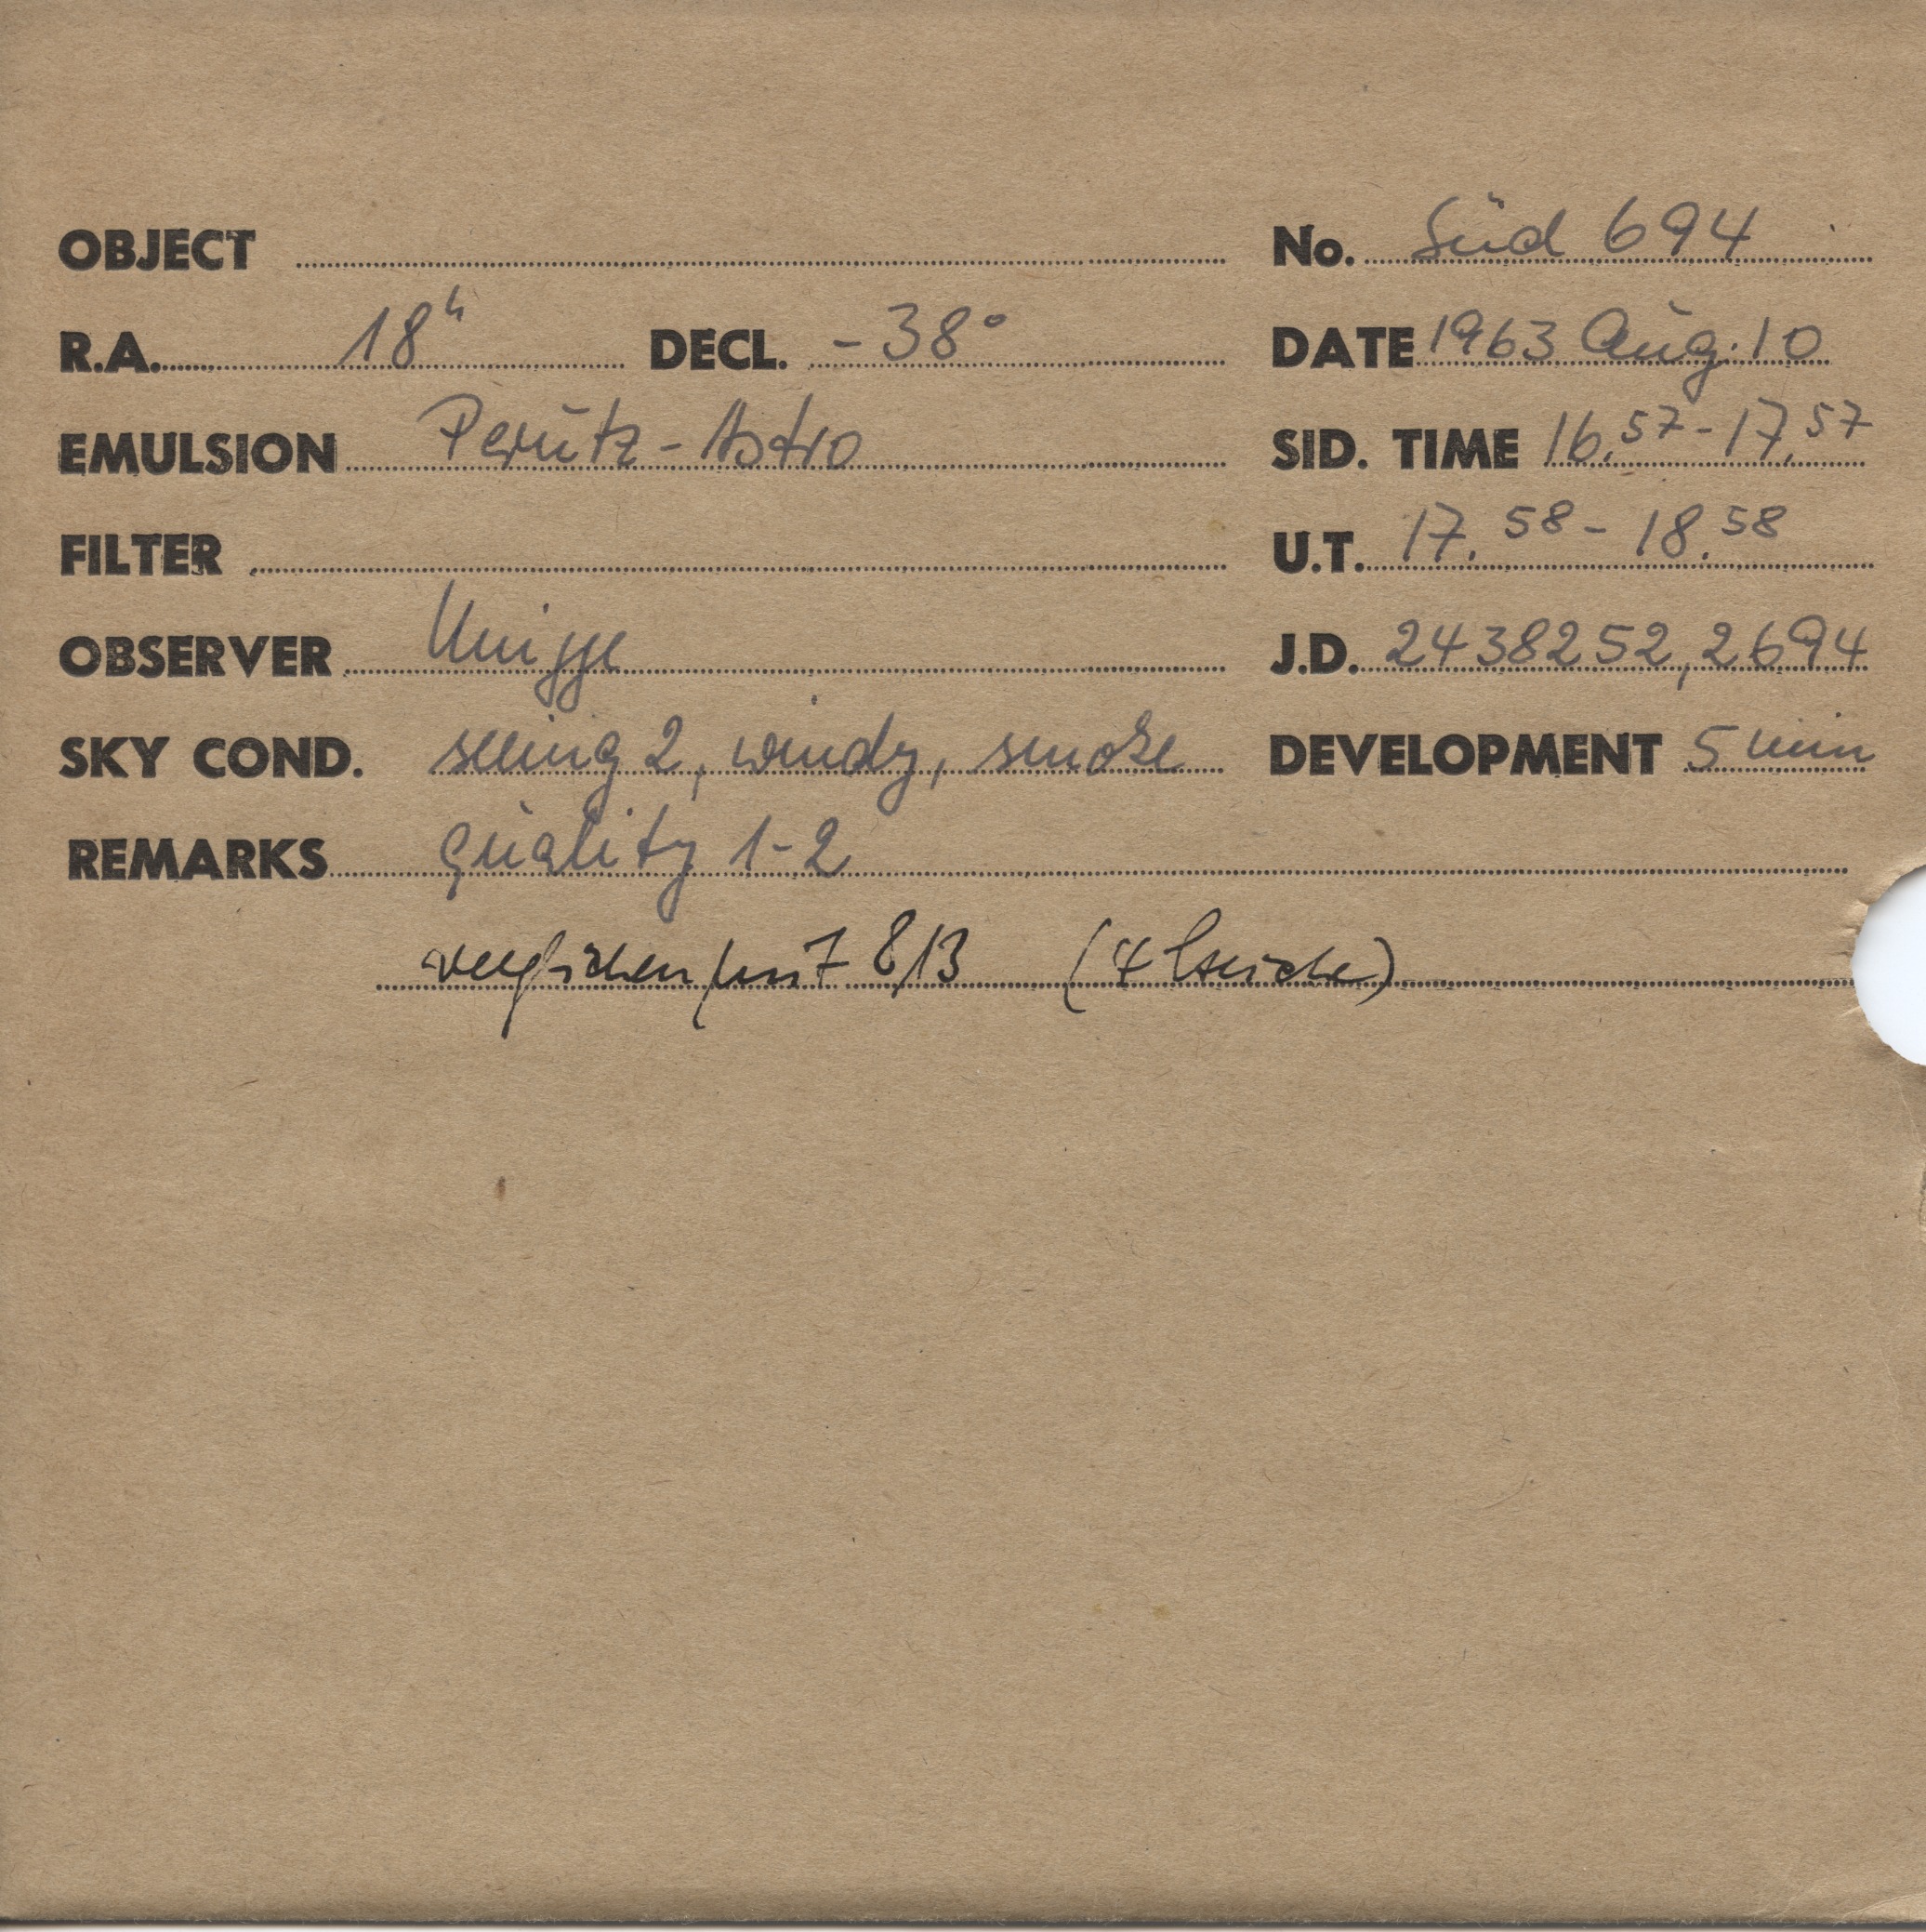 OBJECT No. Süd 694
R.A. 18h DECL. -38° DATE 1963 Aug. 10
EMULSION Perutz-Astro SID. TIME 16.57-17.57
FILTER U.T. 17.58-18.58
OBSERVER Knigge J.D. 2438252,2694
SKY COND. seeing 2, windy, smoke DEVELOPMENT 5 min
REMARKS quality 1-2
verglichen mit 813